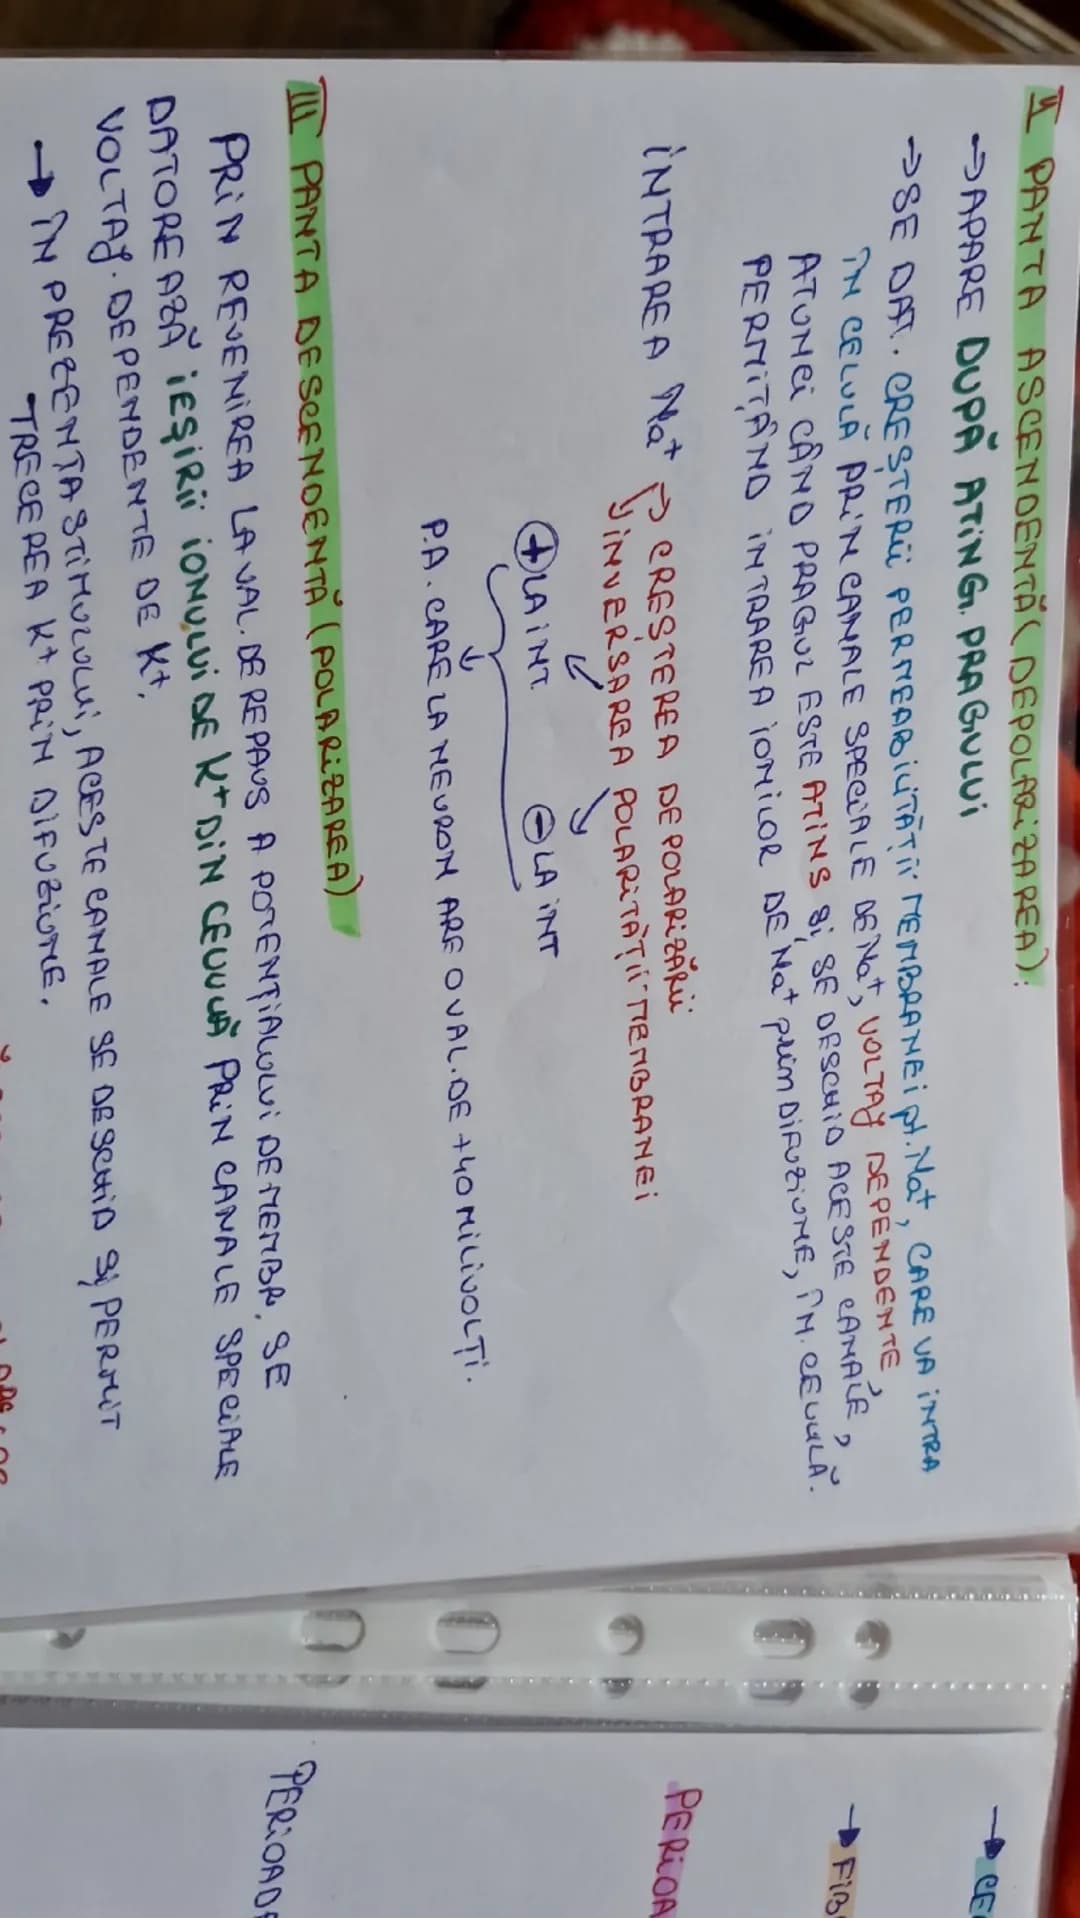 II PANTA ASCENDENTĂ (DEPOLARIZAREA):
→ APARE DUPĂ ATING. PRAGULUI
→ SE DAT. CREȘTERII PERMEABILITĂȚII MEMBRANEI pt. Na+, CARE VA INTRA
ÎN CELULĂ PRIN CANALE SPECIALE DE Na+, VOLTAJ DEPENDENTE,
ATUNCI CÂND PRAGUL ESTE ATINS ȘI SE DESCHID ACESTE CANALE,
PERMIȚÂND INTRAREA IONILOR DE Na+ prin DIFUZIUNE, ÎN CELULĂ.
INTRAREA Na+ → CREȘTEREA DEPOLARIZĂRII
→ INVERSAREA POLARITĂȚII MEMBRANEI
+ LA INT. - LA INT
P.A. CARE LA NEURON ARE O VAL. DE +40 MILIVOLȚI.
III PANTA DESCENDENTĂ (POLARIZAREA)
PRIN REVENIREA LA VAL. DE REPAUS A POTENȚIALULUI DE MEMBR. SE
DATOREAZĂ IEȘIRII IONULUI DE K+ DIN CELULĂ PRIN CANALE SPECIALE
VOLTAJ. DEPENDENTE DE K+.
→ ÎN PREZENȚA STIMULULUI, ACESTE CANALE SE DESCHID ȘI PERMIT
TRECEREA K+ PRIN DIFUZIUNE.
→ CE
→ FIB
PERIOA
PERIOAD